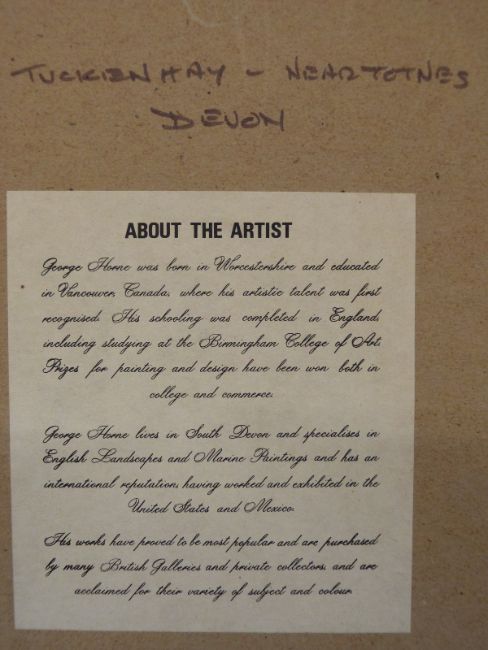 TUCKENHAY - NEAR TOTNES
DEVON
ABOUT THE ARTIST
George Horne was born in Worcestershire and educated
in Vancouver, Canada, where his artistic talent was first
recognised. His schooling was completed in England,
including studying at the Birmingham College of Art
Prizes for painting and design have been won both in
college and commerce.
George Horne lives in South Devon and specialises in
English Landscapes and Marine Paintings and has an
international reputation, having worked and exhibited in the
United States and Mexico.
His works have proved to be most popular and are purchased
by many British Galleries and private collectors, and are
acclaimed for their variety of subject and colour.